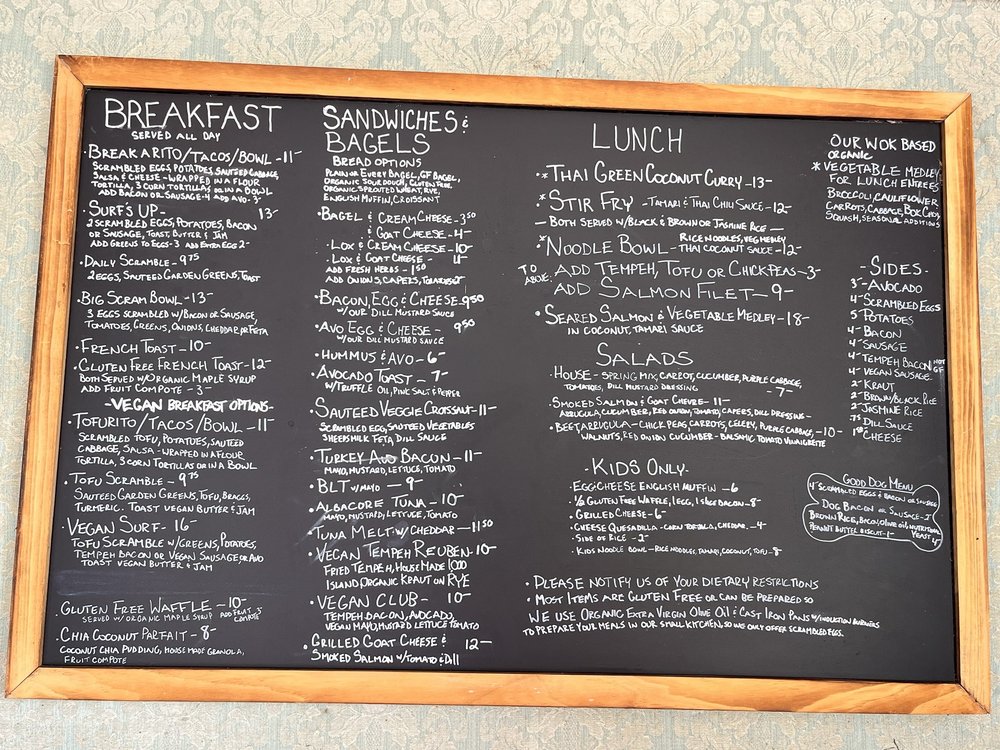 BREAKFAST
SERVED ALL DAY
·BREAKARITO/TACOS/BOWL-11-
SCRAMBLED EGGS, POTATOES, SAUTEED CABBAGE,
SALSA & CHEESE - WRAPPED IN A FLOUR
TORTILLA, 3 CORN TORTILLAS OR IN A BOWL
ADD BACON OR SAUSAGE-4 ADD AVO-3-
·SURFS UP- 13-
2 SCRAMBLED EGGS, POTATOES, BACON
OR SAUSAGE, TOAST, BUTTER & JAM
ADD GREENS TO EGGS-3 ADD EXTRA EGG 2-
·DAILY SCRAMBLE-9.75
2 EGGS, SAUTEED GARDEN GREENS, TOAST
·BIG SCRAM BOWL-13-
3 EGGS SCRAMBLED W/BACON OR SAUSAGE,
TOMATOES, GREENS, ONIONS, CHEDDAR OR FETA
·FRENCH TOAST-10-
·GLUTEN FREE FRENCH TOAST-12-
BOTH SERVED W/ORGANIC MAPLE SYRUP
ADD FRUIT COMPOTE-3-
-VEGAN BREAKFAST OPTIONS-
·TOFURITO/TACOS/BOWL-11-
SCRAMBLED TOFU, POTATOES, SAUTEED
CABBAGE, SALSA-WRAPPED IN A FLOUR
TORTILLA, 3 CORN TORTILLAS OR IN A BOWL
·TOFU SCRAMBLE-9.75
SAUTEED GARDEN GREENS, TOFU, BRAGGS,
TURMERIC. TOAST VEGAN BUTTER & JAM
·VEGAN SURF-16-
TOFU SCRAMBLE W/GREENS, POTATOES,
TEMPEH BACON OR VEGAN SAUSAGE OR AVO
TOAST VEGAN BUTTER & JAM
·GLUTEN FREE WAFFLE-10-
SERVED W/ORGANIC MAPLE SYRUP ADD FRUIT 3 COMPOTE
·CHIA COCONUT PARFAIT-8-
COCONUT CHIA PUDDING, HOUSE MADE GRANOLA,
FRUIT COMPOTE
SANDWICHES &
BAGELS
BREAD OPTIONS
PLAIN OR EVERY BAGEL, GF BAGEL,
ORGANIC SOUR DOUGH, GLUTEN FREE
ORGANIC SPROUTED WHEAT, RYE,
ENGLISH MUFFIN, CROISSANT
·BAGEL & CREAM CHEESE-3.50
& GOAT CHEESE-4-
·LOX & CREAM CHEESE-10-
LOX & GOAT CHEESE-11-
ADD FRESH HERBS-1.50
ADD ONIONS, CAPERS, TOMATOES 2-
·BACON, EGG & CHEESE-9.50
W/OUR DILL MUSTARD SAUCE
·AVO EGG & CHEESE-9.50
W/OUR DILL MUSTARD SAUCE
·HUMMUS & AVO-6-
·AVOCADO TOAST-7-
W/TRUFFLE OIL, PINK SALT & PEPPER
·SAUTEED VEGGIE CROISSANT-11-
SCRAMBLED EGG, SAUTEED VEGETABLES
SHEEPS MILK FETA, DILL SAUCE
·TURKEY AVO BACON-11-
MAYO, MUSTARD, LETTUCE, TOMATO
·BLT W/MAYO-9-
·ALBACORE TUNA-10-
MAYO, MUSTARD, LETTUCE, TOMATO
·TUNA MELT W/CHEDDAR-11.50
·VEGAN TEMPEH REUBEN-10-
FRIED TEMPEH, HOUSE MADE 1000
ISLAND, ORGANIC KRAUT ON RYE
·VEGAN CLUB-10-
TEMPEH BACON, AVOCADO,
VEGAN MAYO, MUSTARD LETTUCE TOMATO
·GRILLED GOAT CHEESE & 12-
SMOKED SALMON W/TOMATO & DILL
LUNCH
·*THAI GREEN COCONUT CURRY-13-
·*STIR FRY-TAMARI & THAI CHILI SAUCE-12-
-BOTH SERVED W/BLACK & BROWN OR JASMINE RICE-
·*NOODLE BOWL-RICE NOODLES, VEG MEDLEY
THAI COCONUT SAUCE-12-
TO ABOVE: ADD TEMPEH, TOFU OR CHICKPEAS-3-
ADD SALMON FILET-9-
·SEARED SALMON & VEGETABLE MEDLEY-18-
IN COCONUT, TAMARI SAUCE
SALADS
·HOUSE-SPRING MIX, CARROT, CUCUMBER, PURPLE CABBAGE,
TOMATOES, DILL MUSTARD DRESSING -7-
·SMOKED SALMON & GOAT CHEVRE-11-
ARRUGULA, CUCUMBER, RED ONION, TOMATO, CAPERS, DILL DRESSING-
·BEETARRUGULA-CHICKPEAS, CARROTS, CELERY, PURPLE CABBAGE,-10-
WALNUTS, RED ONION CUCUMBER-BALSAMIC TOMATO VINAIGRETTE
-KIDS ONLY-
·EGG CHEESE ENGLISH MUFFIN-6
·1/2 GLUTEN FREE WAFFLE, 1 EGG, 1 SLICE BACON-8-
·GRILLED CHEESE-6-
·CHEESE QUESADILLA-CORN TORTILLA, CHEDDAR.-4-
·SIDE OF RICE-2-
·KIDS NOODLE BOWL-RICE NOODLES, TAMARI, COCONUT, TOFU-8-
·PLEASE NOTIFY US OF YOUR DIETARY RESTRICTIONS
·MOST ITEMS ARE GLUTEN FREE OR CAN BE PREPARED SO
WE USE ORGANIC EXTRA VIRGIN OLIVE OIL & CAST IRON PANS W/INDUCTION BURNERS
TO PREPARE YOUR MEALS IN OUR SMALL KITCHEN, SO WE ONLY OFFER SCRAMBLED EGGS.
OUR WOK BASED
ORGANIC
*VEGETABLE MEDLEY
FOR LUNCH ENTREES
BROCCOLI, CAULIFLOWER
CARROTS, CABBAGE, BOK CHOY
SQUASH, SEASONAL ADDITIONS
-SIDES-
3-AVOCADO
4-SCRAMBLED EGGS
5 POTATOES
4-BACON
4-SAUSAGE
4-TEMPEH BACON NOT GF
4-VEGAN SAUSAGE
2-KRAUT
2-BROWN/BLACK RICE
2-JASMINE RICE
.75 DILL SAUCE
1.50 CHEESE
GOOD DOG MENU
4-SCRAMBLED EGGS & BACON OR SAUSAGE
DOG BACON OR SAUSAGE-3-
BROWN RICE, BACON, OLIVE OIL & NUTRITIONAL YEAST 4-
PEANUT BUTTER BISCUIT-1-